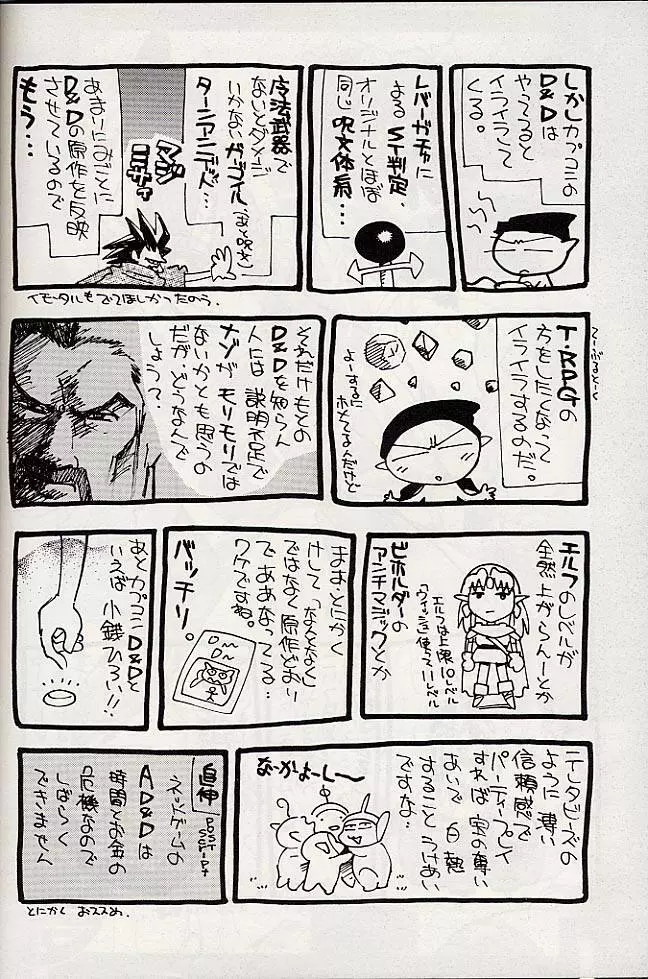 しかしカプコンの
D&Dは
やってると
イライラして
くる。
レバーガチャに
よるST判定、
オリジナルとほぼ
同じ呪文体系…
魔法武器で
ないとダメージ
いかないガーゴイル
(まと呪文)
ターンアンデッド…
マジ
ミサイ
あまりにみごとに
D&Dの原作を反映
させているので
もう…
イモータルもでてほしかったのう。
てーぶるとーく
T・RPGの
方をしたくなって
イライラするのだ。
よーするに
ホメてるんだけど
それだけもとの
D&Dを知らん
人には説明不足で
ナゾがモリモリでは
ないかとも思うの
だが、どうなんで
しょうって。
エルフのレベルが
全然上がらんーとか
エルフは上限10レベル
「ウィッシュ」使って11レベル
ビホルダーの
アンチマジックとか
まあとにかく
けして「なんとなく」
ではなく原作どおり
でああなってる…
ワケですね。
バッチリ。
D〜
D〜
あとカプコンD&Dと
いえば小銭ひろい!!
テレタビーズの
ように薄い
信頼感で
パーティープレイ
すれば宝の奪い
あいで白熱
することうけあい
ですな…
なーかよーしー
追伸
POST
SCRIPt
ネットゲームの
AD&Dは
時間とお金の
危機なので
しばらく
できません
とにかくおススメ。